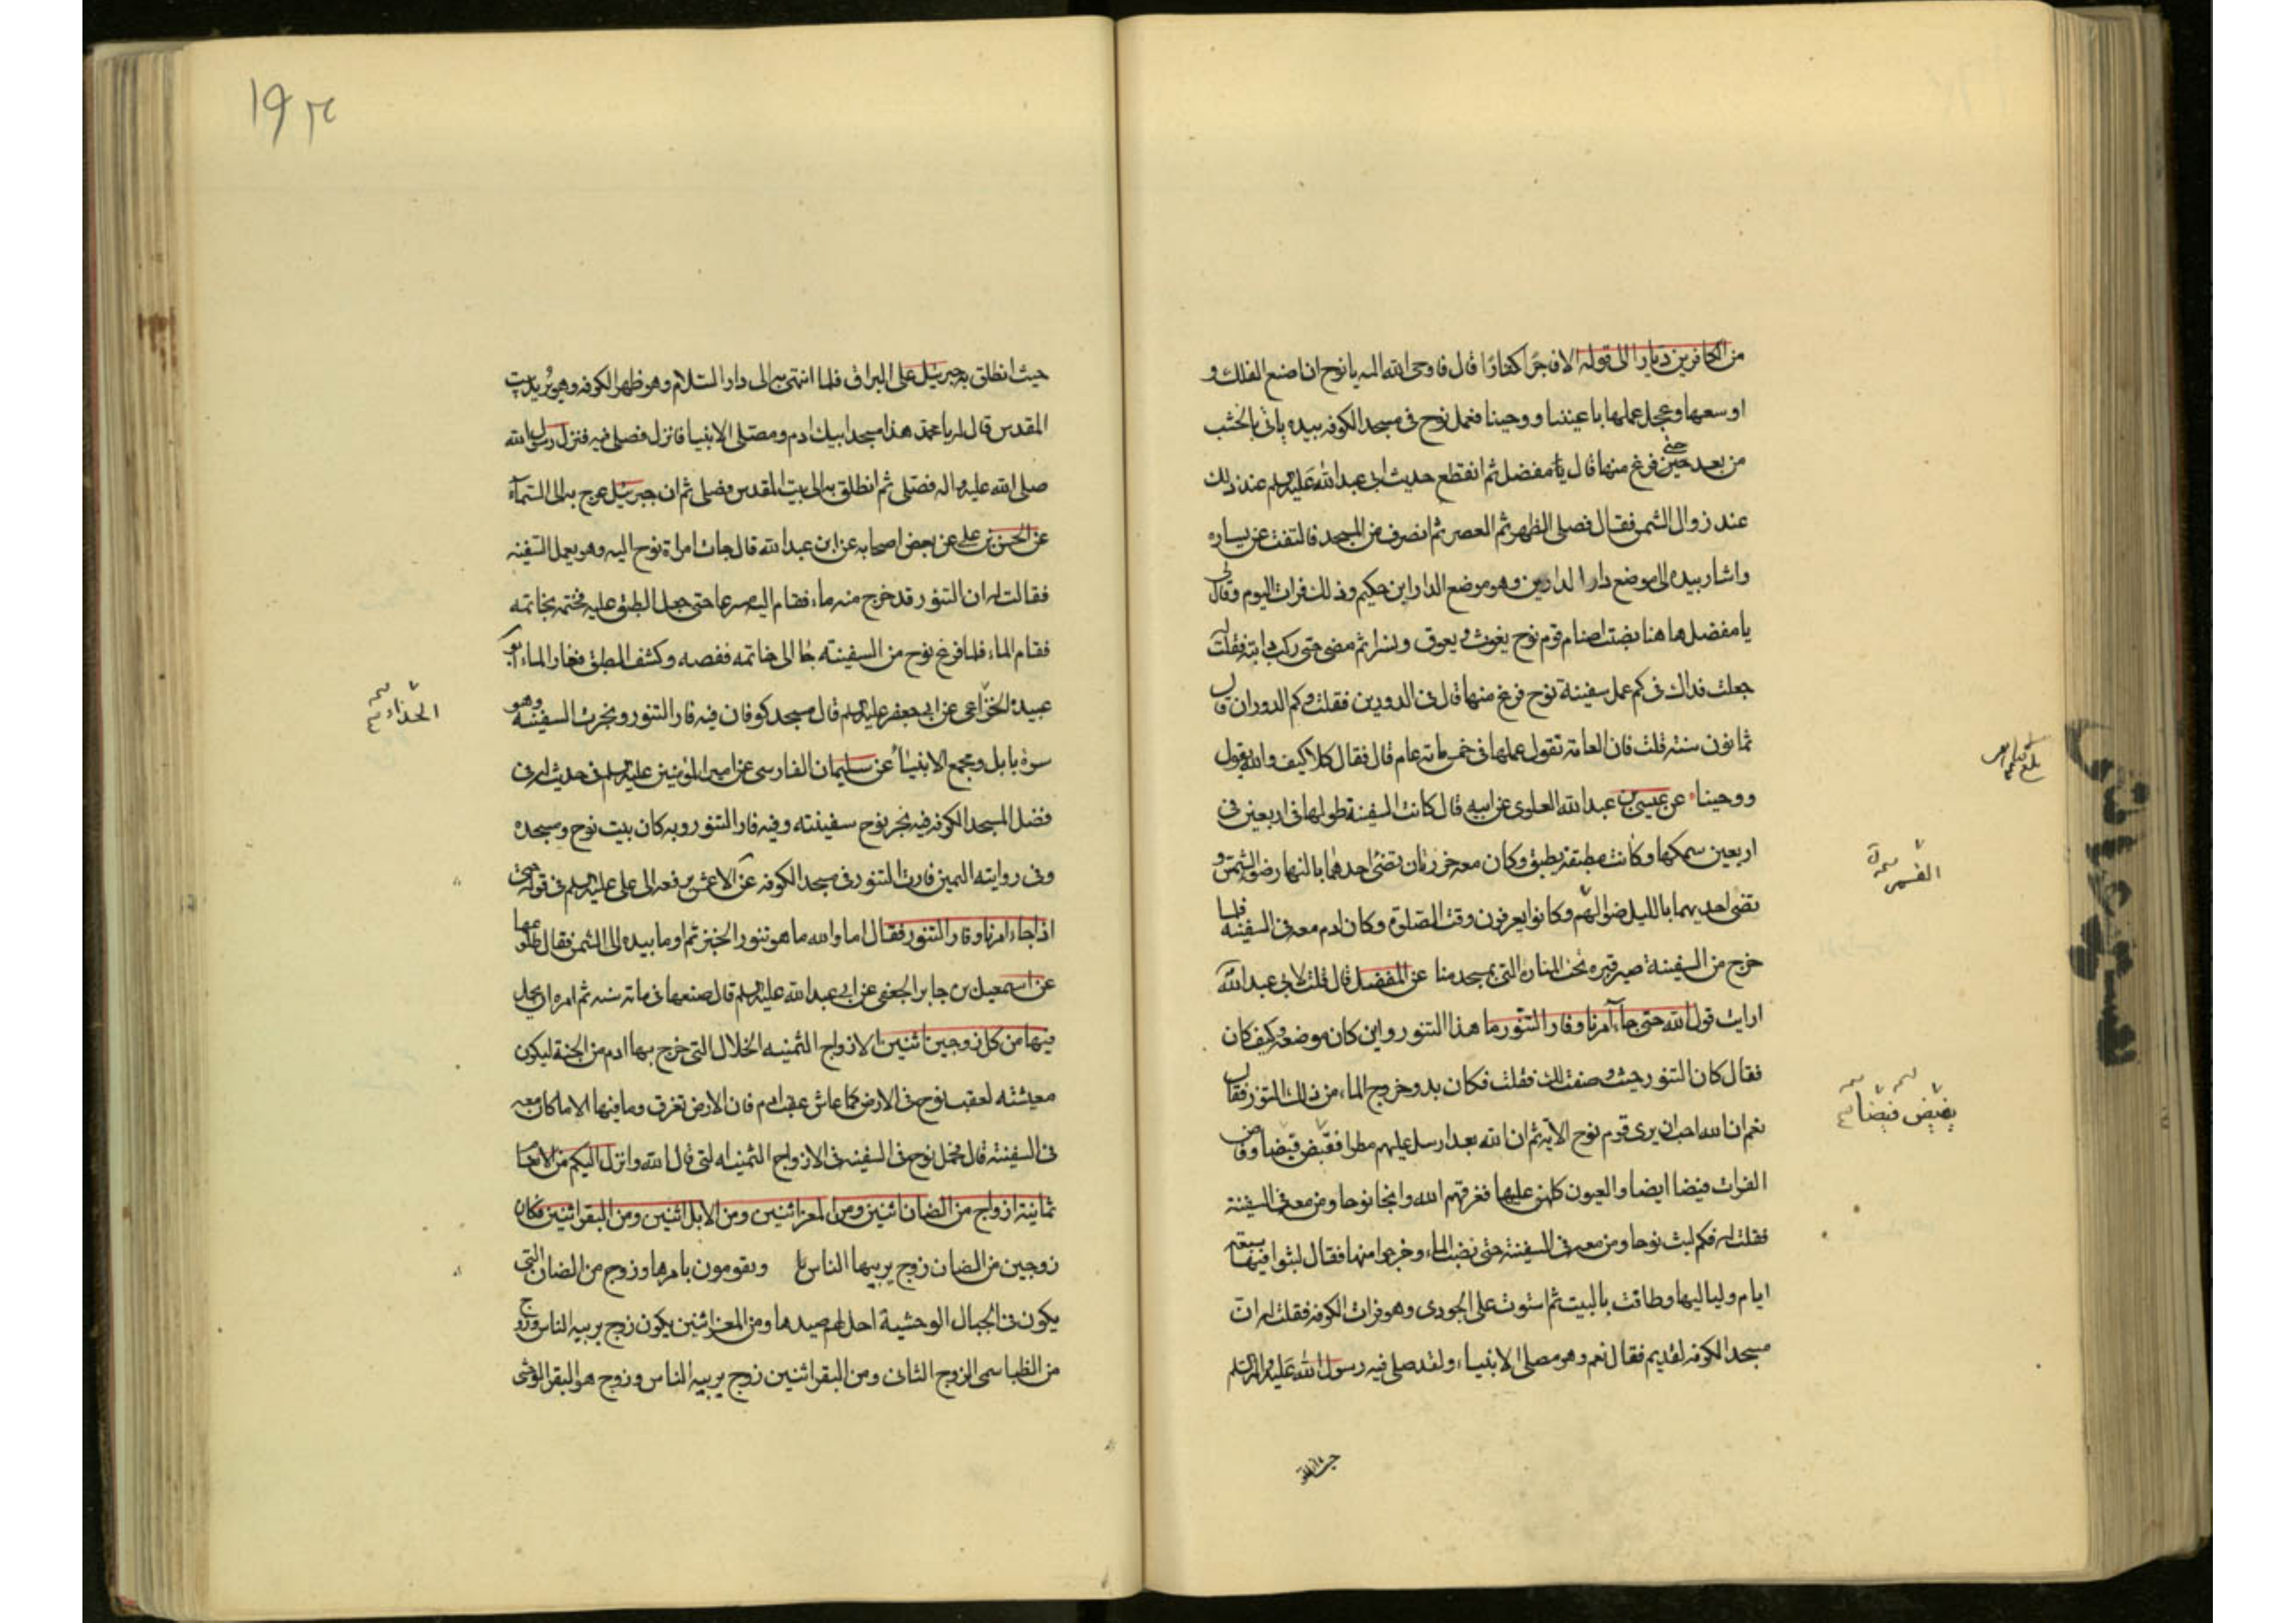 من الكافرين ديارا الى قوله الا فاجرا كفارا قال فاوحى الله اليه يا نوح ان اصنع الفلك و
اوسعها وعجل عملها باعيننا ووحينا فعمل نوح فى مسجد الكوفه بيده ياتى بالخشب
من بعد حتى فرغ منها قال يا مفضل ثم انقطع حديث ابى عبد الله عليه السلم عند ذلك
عند زوال الشمس فقال فصلى الظهر ثم العصر ثم انصرف من المسجد فالتفت عن يساره
واشار بيده الى موضع دار الدارين وهو موضع الدار ابن حكيم وذلك فرات اليوم وقال لى
يا مفضل هاهنا نصبت اصنام قوم نوح يغوث و يعوق ونسرا ثم مضى حتى ركب دابته فقلت له
جعلت فداك فى كم عمل سفينة نوح فرغ منها قال فى الدورين فقلت وكم الدوران قال
ثمانون سنة قلت فان العامة تقول عملها فى خمس مائة عام قال فقال كلا كيف والله يقول
ووحينا عن عيسى بن عبد الله العلوى عن ابيه قال كانت السفينة طولها فى اربعين فى
اربعين سمكها وكانت مطبقة بطبق وكان معه خرزتان تضئ احدهما بالنهار ضوء الشمس و
تضى احديهما بالليل ضوء لهم وكانوا يعرفون وقت الصلوة وكان ادم معه فى السفينة فلما
خرج من السفينة صير قبره تحت المنارة التى بمسجد منا عن المفضل قال قلت لابى عبد الله
ارايت قول الله حتى جاء امرنا وفار التنور ما هذا التنور واين كان موضعه وكيف كان
فقال كان التنور حيث وصفت لك فقلت فكان بدو خروج الماء من ذلك التنور فقال
نعم ان الله احب ان يرى قوم نوح الاية ثم ان الله بعد ارسل عليهم مطرا فقبض قبضا وفاض
الفرات فيضا ايضا والعيون كلهن عليها فغرقهم الله وانجا نوحا ومن معه فى السفينة
فقلت له فكم لبث نوحا ومن معه فى السفينة حتى نضب الماء وخرجوا منها فقال لبثوا فيها سبعة
ايام ولياليها وطافت بالبيت ثم ستوت على الجودى وهو فرات الكوفه فقلت له ان
مسجد الكوفه لقديم فقال نعم وهو مصلى الانبياء ولقد صلى فيه رسول الله عليه واله السلم
القمر
يفيض فيضا
حيث انطلق
١٩٣
حيث انطلق به جبرئيل على البراق فلما انتهى به الى دار السلام وهو ظهر الكوفه وهو يريد بيت
المقدس قال له يا محمد هذا مسجد ابيك ادم ومصلى الانبيا فانزل فصلى فيه فنزل رسول الله
صلى الله عليه واله فصلى ثم انطلق به الى بيت المقدس فصلى ثم ان جبرئيل عرج به الى السماء
عن الحسن بن على عن بعض اصحابه عن ابى عبد الله قال جات امراة نوح اليه وهو يعمل السفينه
فقالت له ان التنور قد خرج منه ماء فقام اليه مسرعا حتى جعل الطبق عليه فختمه بخاتمه
فقام الماء فلما فرغ نوح من السفينه جا الى خاتمه ففصه وكشف الطبق ففار الماء ابو
عبيدة الخزاعى عن ابى جعفر عليه السلم قال مسجد كوفان فيه فار التنور ونجرت السفينه وهو
سرة بابل ومجمع الانبياء عن سليمان الفارسى عن امير المؤمنين عليه السلم فى حديث له فى
فضل المسجد الكوفه فيه نجر نوح سفينته وفيه فار التنور وبه كان بيت نوح ومسجده
وفى رواية اليمين فارت التنور فى مسجد الكوفه عن الاعمش يرفعه الى على عليه السلم فى قوله حتى
اذا جاء امرنا وفار التنور فقال اما والله ما هو تنور الخبز ثم اوما بيده الى الشمس فقال طلوعها
عن اسمعيل بن جابر الجعفى عن ابى عبد الله عليه السلم قال صنعها فى مائة سنه ثم امره ان يحمل
فيها من كل زوجين اثنين الازواج الثمنيه الحلال التى خرج بها ادم من الجنة ليكون
معيشته لعقب نوح فى الارض كما عاش عقب ادم فان الارض تغرق وما فيها الا ما كان معه
فى السفينة قال فحمل نوح فى السفينه فى الازواج الثمنيه التى قال الله وانزل اليكم من الانعام
ثمانية ازواج من الضان اثنين ومن المعز اثنين ومن الابل اثنين ومن البقر اثنين فكان
زوجين من الضان زوج يربيها الناس ويقومون بامرها وزوج من الضان التى
يكون فى الجبال الوحشية احل لهم صيدها ومن المعز اثنين يكون زوج يربيه الناس وزوج
من الظبا سمى الزوج الثانى ومن البقر اثنين زوج يربيه الناس وزوج هو البقر الوحشى
الحذاء